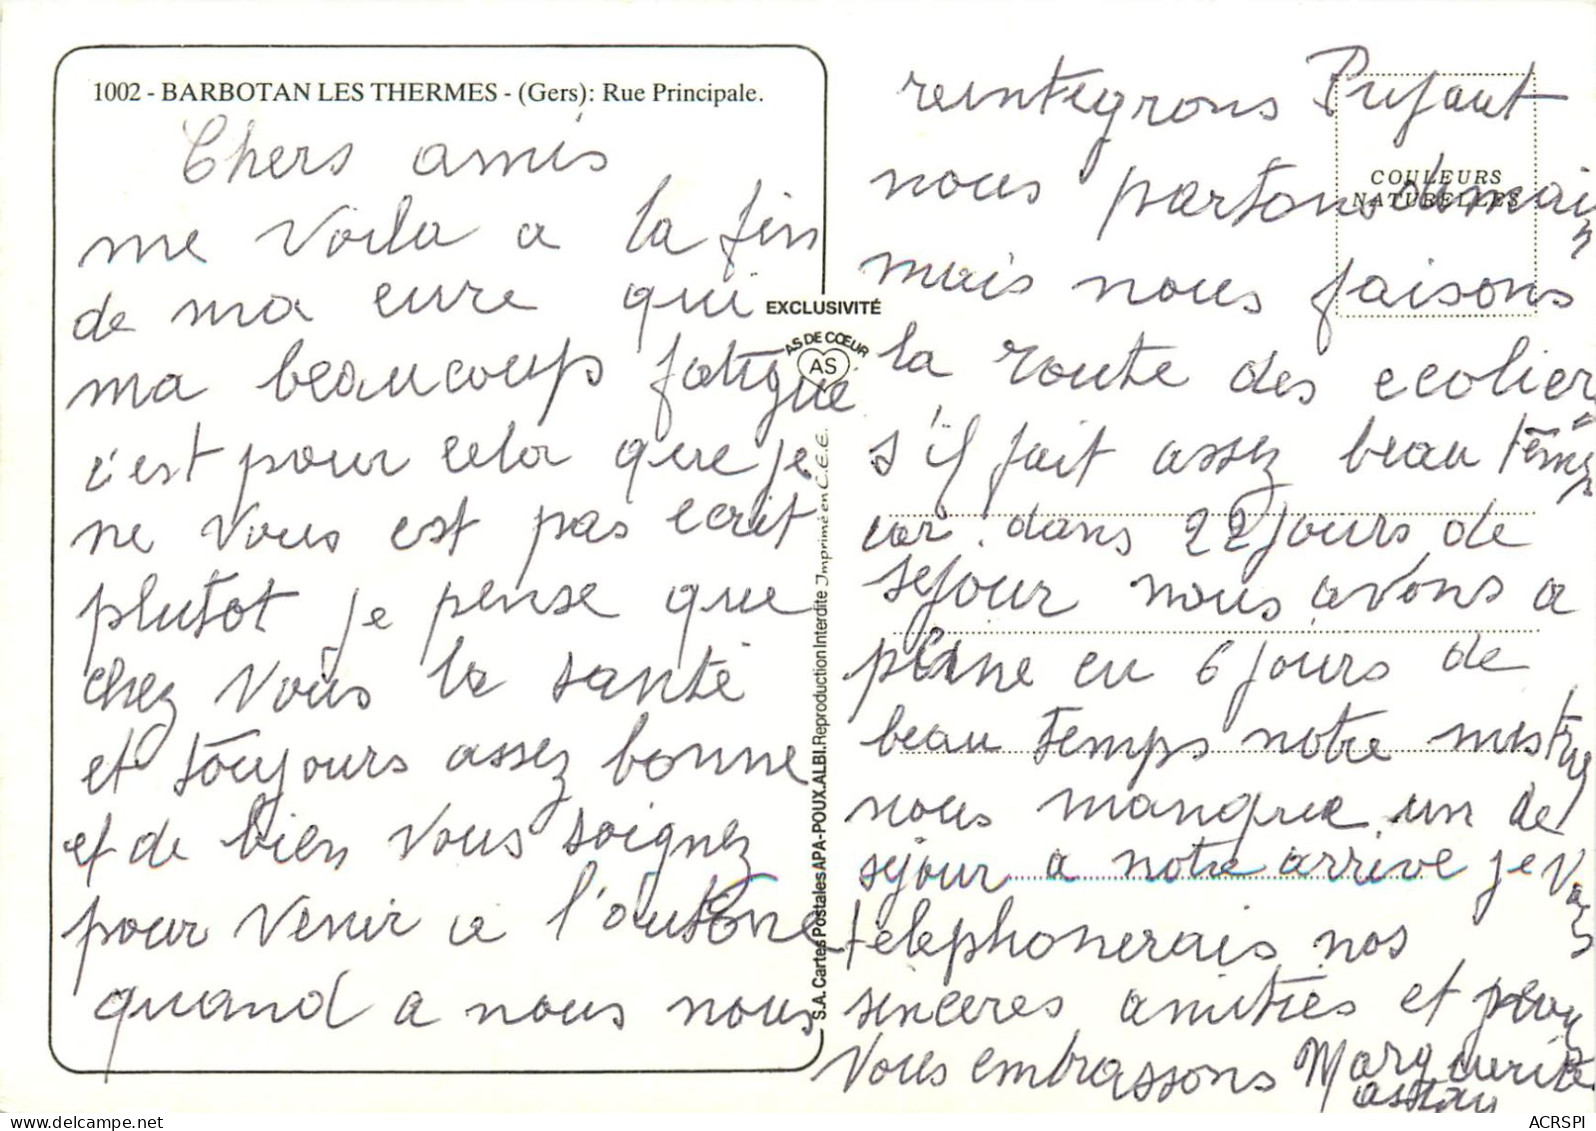 1002 - BARBOTAN LES THERMES - (Gers): Rue Principale.
Chers amis
me voila a la fin
de ma cure qui
ma beaucoup fatigué
c'est pour cela que je
ne vous est pas ecrit
plutot je pense que
chez vous la santé
et toujours assez bonne
et de bien vous soignez
pour venir a l'outone
quand a nous nous
EXCLUSIVITÉ
AS DE CŒUR
AS
S.A. Cartes Postales APA-POUX. ALBI. Reproduction Interdite Imprimé en C.E.E.
COULEURS
NATURELLES
reintegrons
nous partons demain
mais nous faisons
la route des ecolier
s'il fait assez beau temps
car dans 22 jours de
sejour nous avons a
peine eu 6 jours de
beau temps notre
nous manque un de
séjour a notre arrivé je vous
télephonerais nos
sinceres amitiés et
vous embrassons Marguerite
ACRSPI